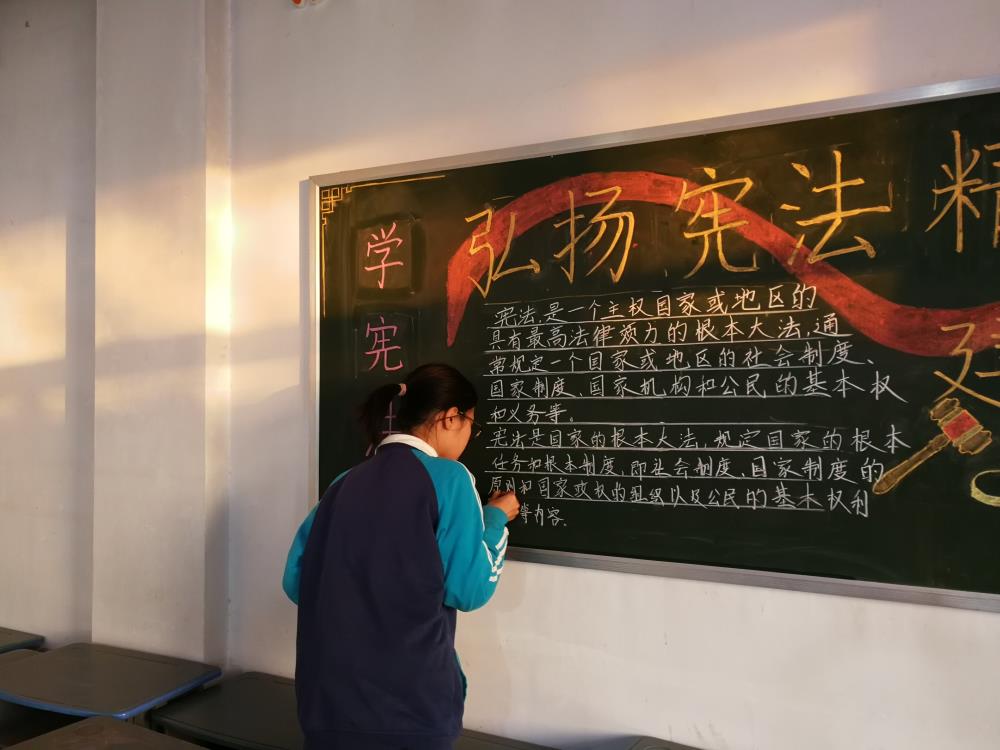 弘扬宪法精
学
宪
宪法,是一个主权国家或地区的
具有最高法律效力的根本大法,通
常规定一个国家或地区的社会制度、
国家制度、国家机构和公民的基本权
和义务等。
宪法是国家的根本大法,规定国家的根本
任务和根本制度,即社会制度、国家制度的
原则和国家政权的组织以及公民的基本权利
等内容.